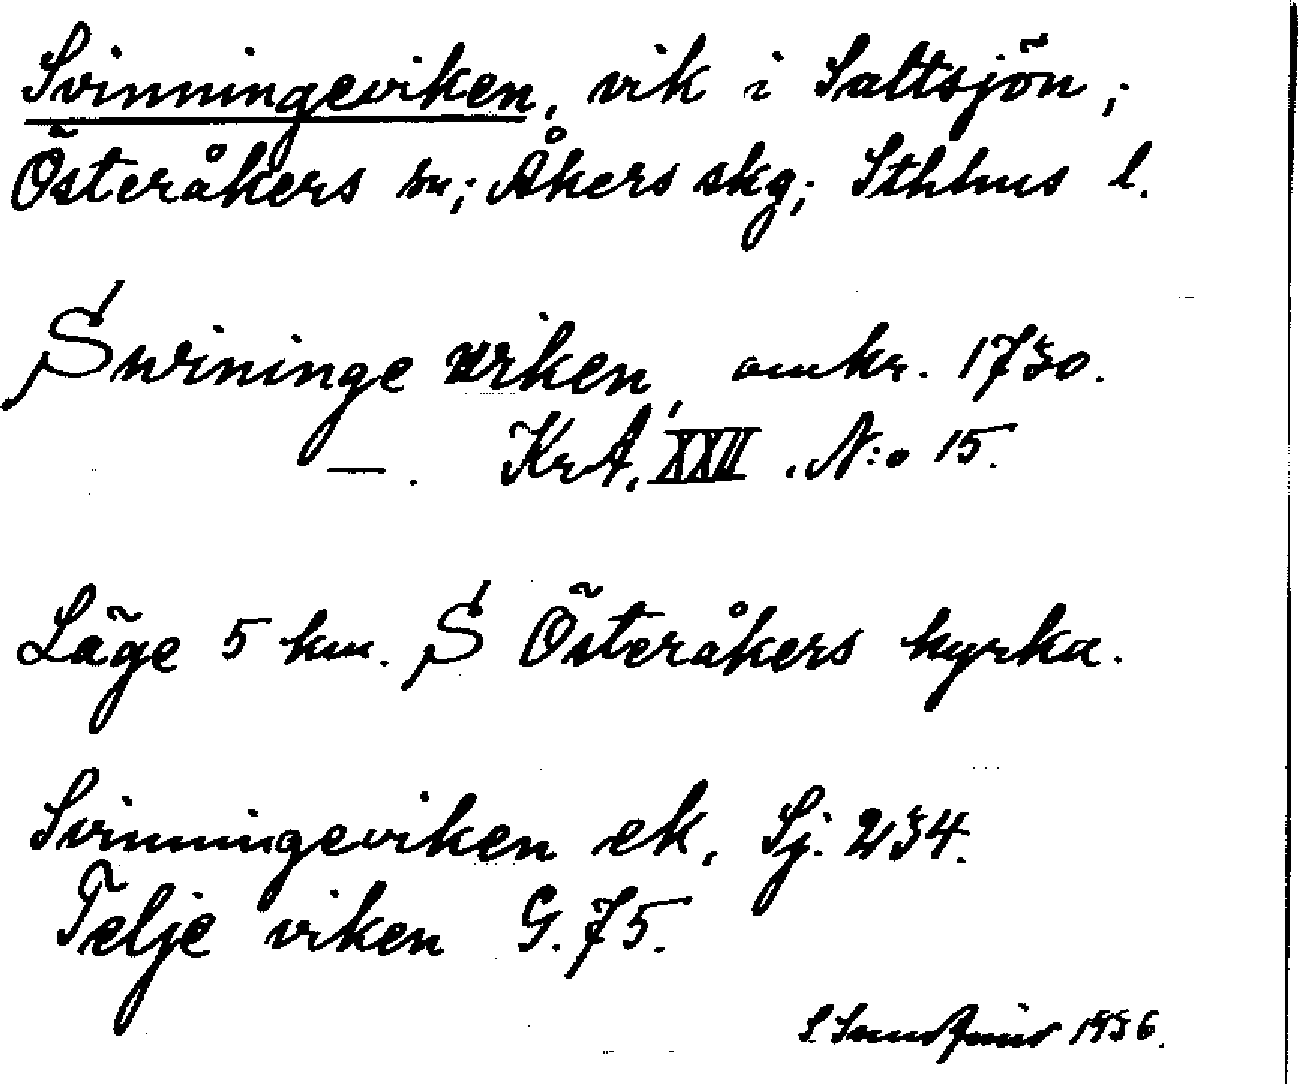 Svinningeviken, vik i Saltsjön,
Österåkers sn; Åkers skg; Sthlms l.
Swininge wiken, omkr. 1730.
—. KrA, XXII. N:o 15.
Läge 5 km. S Österåkers kyrka.
Svinningeviken ek. Sj. 234.
Telje viken G. 75.
1936.